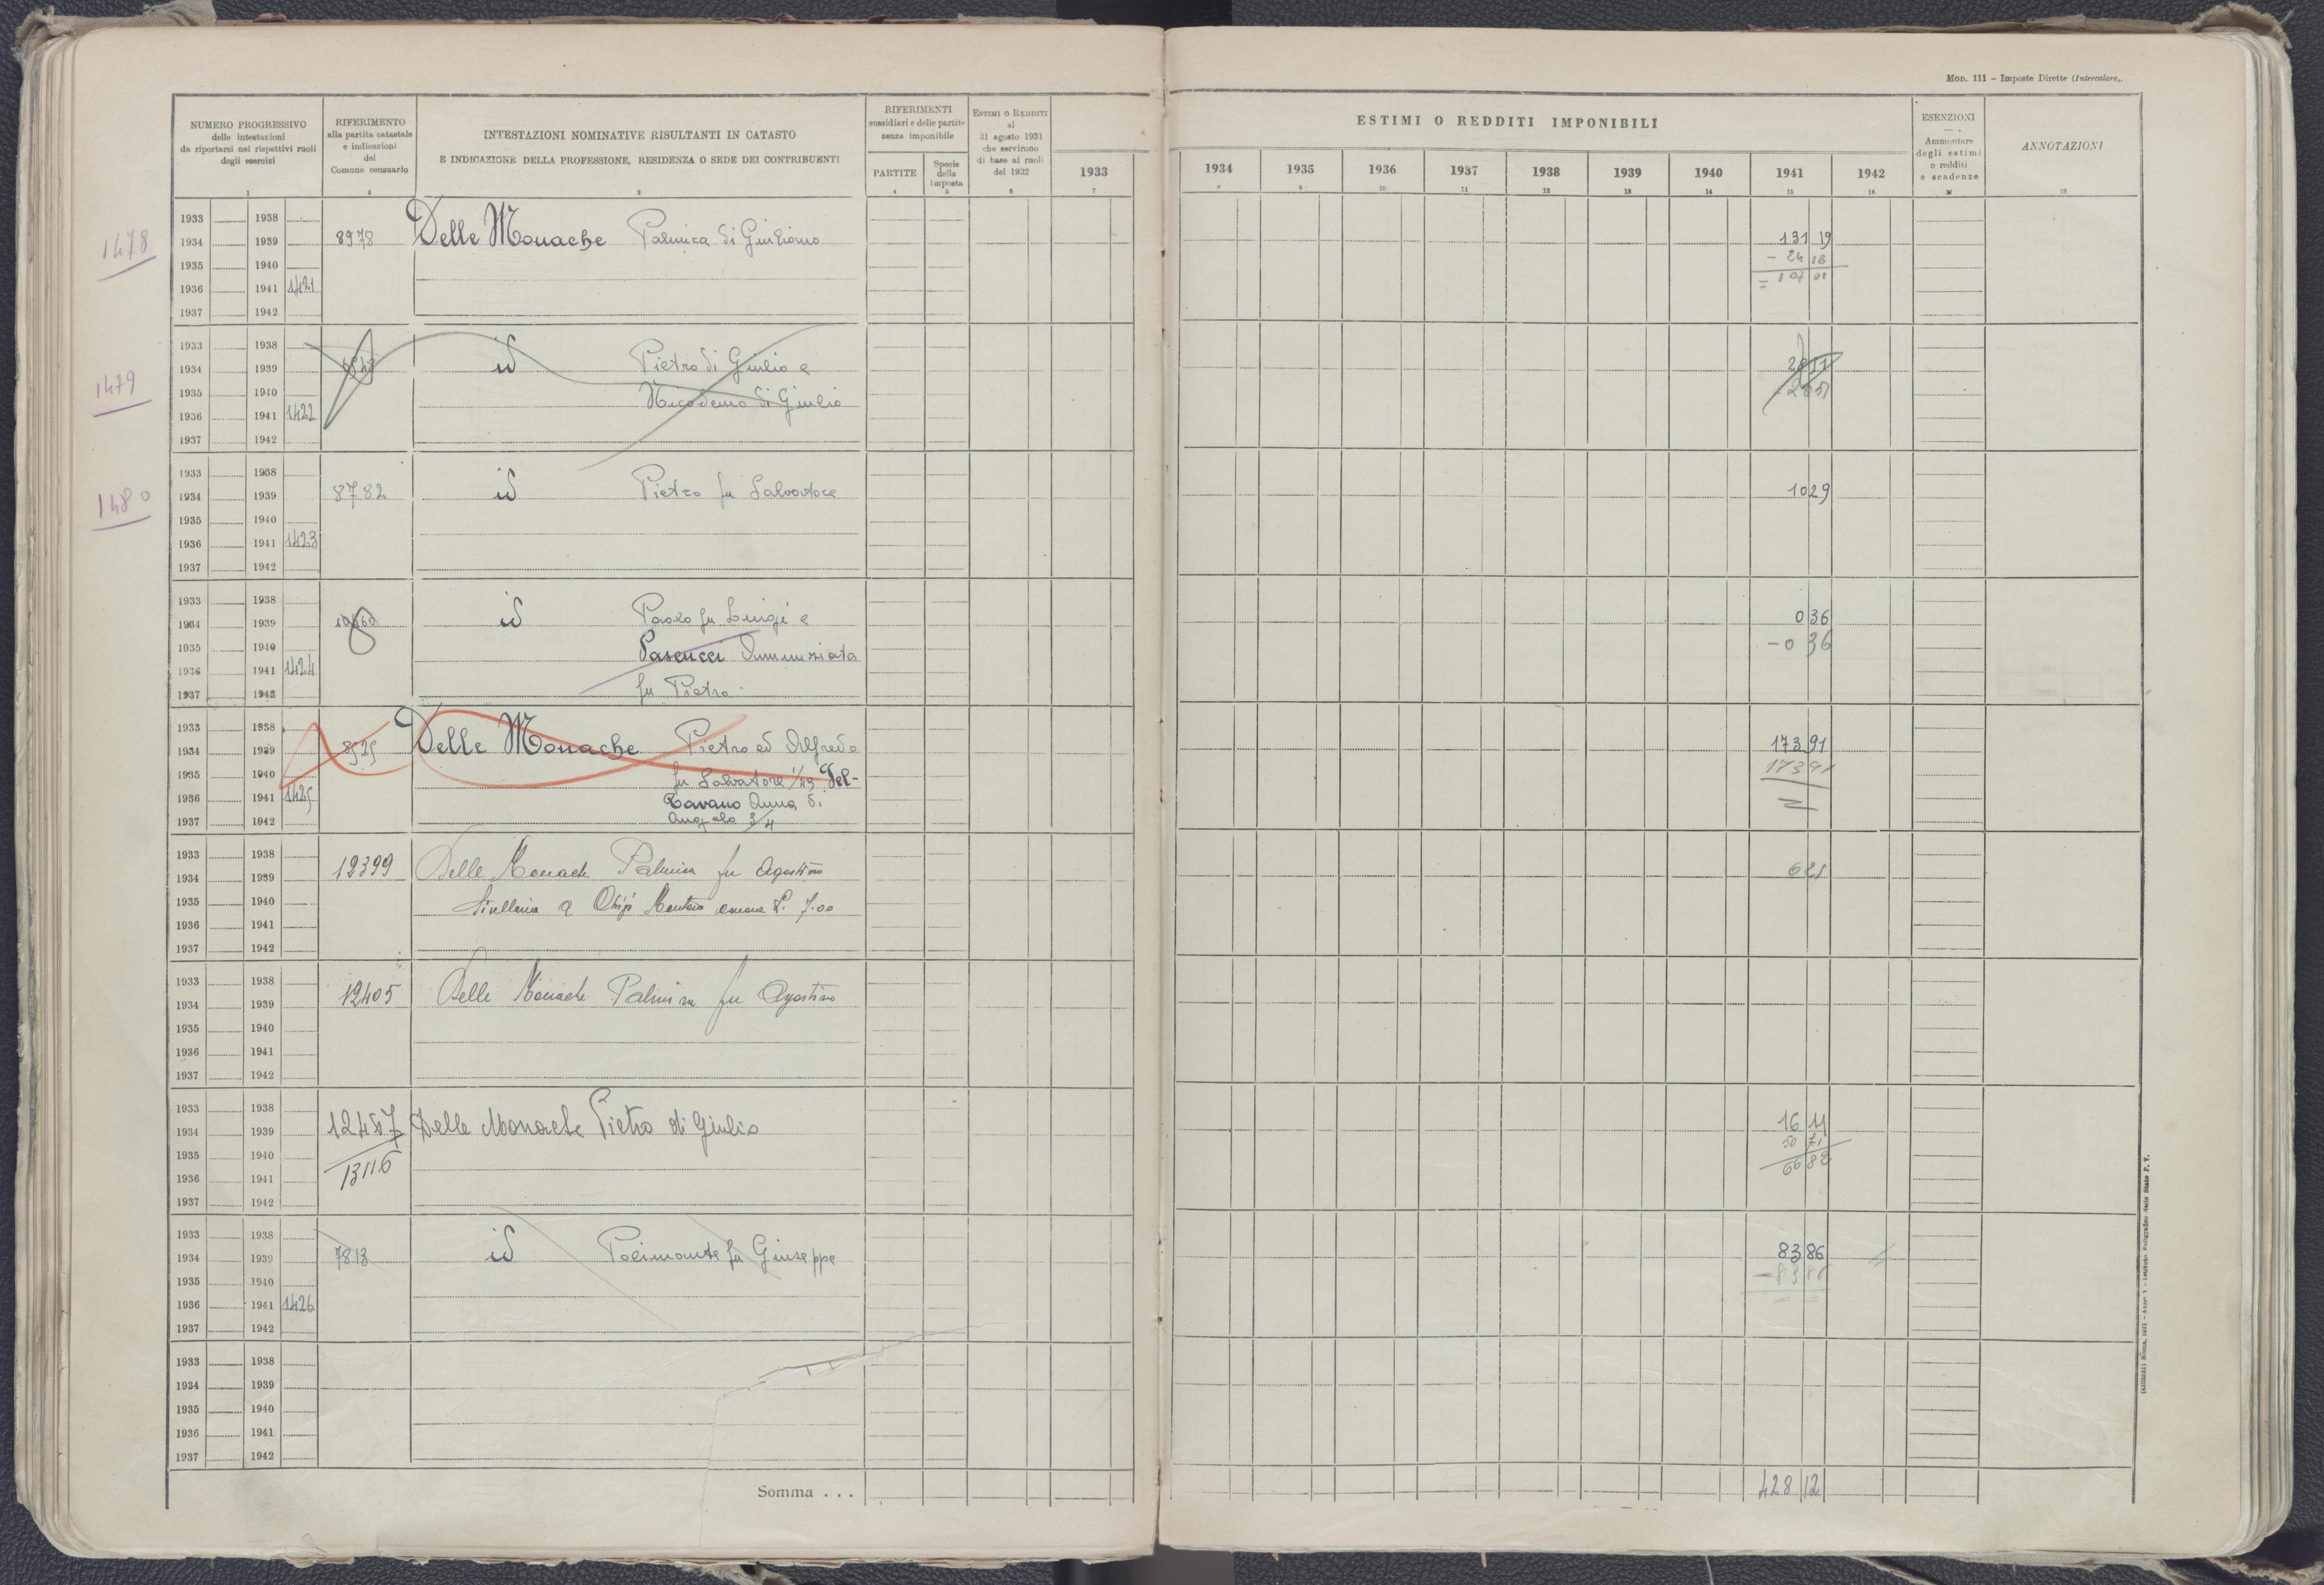 Mod. 111 - Imposte Dirette (Intercalare).
NUMERO PROGRESSIVO
delle intestazioni
da riportarsi nei rispettivi ruoli
degli esercizi
1
RIFERIMENTO
alla partita catastale
e indicazioni
del
Comune censuario
2
INTESTAZIONI NOMINATIVE RISULTANTI IN CATASTO
E INDICAZIONE DELLA PROFESSIONE, RESIDENZA O SEDE DEI CONTRIBUENTI
3
RIFERIMENTI
sussidiari e delle partite
senza imponibile
PARTITE
4
Specie
della
imposta
5
ESTIMI O REDDITI
al
31 agosto 1931
che servirono
di base ai ruoli
del 1932
6
1933
7
ESTIMI O REDDITI IMPONIBILI
1934 1935 1936 1937 1938 1939 1940 1941 1942
9 10 11 12 13 14 15 16
ESENZIONI
Ammontare
degli estimi
o redditi
e scadenze
ANNOTAZIONI
18
1933 1938
1478 1934 1939 8978 Delle Monache Palmira di 131 19
1935 1940 - 24 18
1936 1941 1421 =
1937 1942
1933 1938
1479 1934 1939 id Pietro di Giulio e
1935 1940 Nicodemo di Giulio
1936 1941 1422
1937 1942
1933 1938
1480 1934 1939 8782 id Pietro fu Salvatore 10 29
1935 1940
1936 1941 1423
1937 1942
1933 1938
1934 1939 id Paolo fu Luigi e 0 36
1935 1940 Pascucci Annunziata - 0 36
1936 1941 1424 fu Pietro
1937 1942
1933 1938
1934 1939 8525 Delle Monache Pietro ed Alfredo 173 91
1935 1940 fu Salvatore Del- 173 91
1936 1941 1425 Anna di =
1937 1942 Angelo 3/4
1933 1938
1934 1939 12399 Delle Monache Palmira fu Agostino 6 21
1935 1940 Livellaria a Chigi canone L. 7.00
1936 1941
1937 1942
1933 1938
1934 1939 12405 Delle Monache Palmira fu Agostino
1935 1940
1936 1941
1937 1942
1933 1938
1934 1939 12457 Delle Monache Pietro di Giulio 16 11
1935 1940 13116 50 71
1936 1941 66 82
1937 1942
1933 1938
1934 1939 7813 id Polimante fu Giuseppe 83 86
1935 1940 - 83 86
1936 1941 1426 = =
1937 1942
1933 1938
1934 1939
1935 1940
1936 1941
1937 1942
Somma . . . 428 12